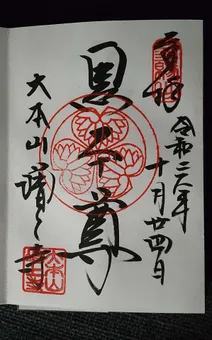 奉拝 令和元年十月廿四日
黒本尊
大本山 増上寺